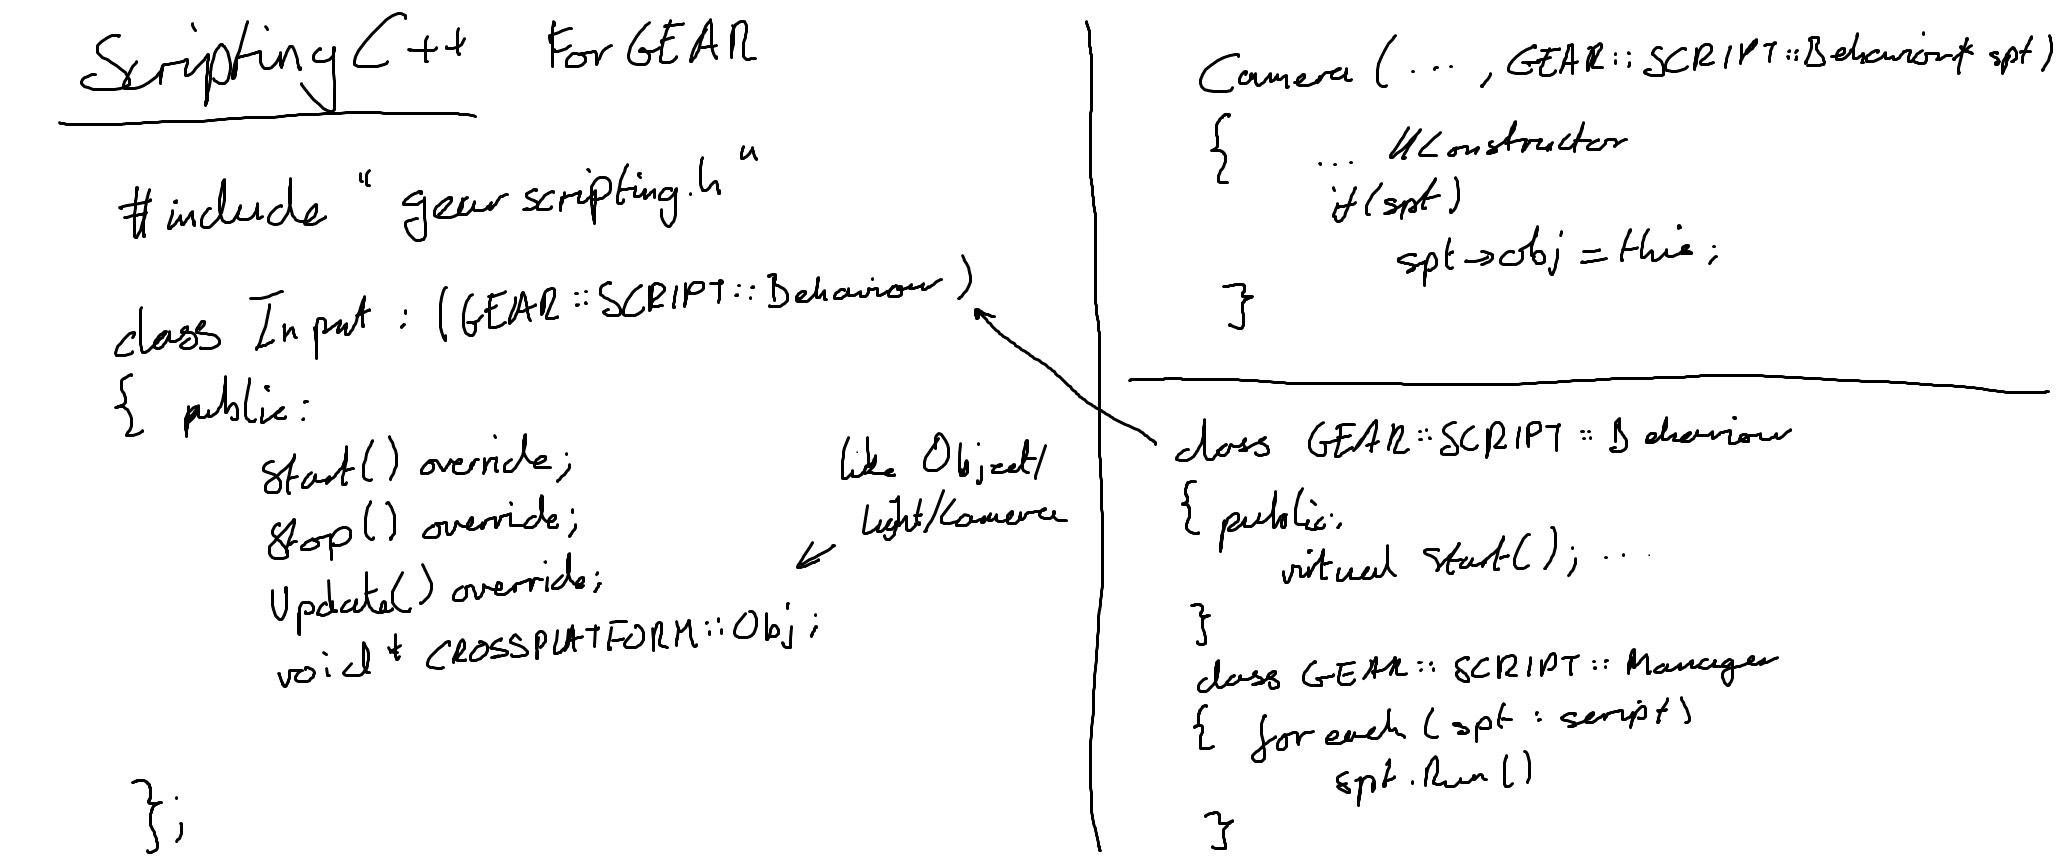 Scripting C++ For GEAR
#include "gearscripting.h"
class Input : (GEAR::SCRIPT::Behaviour)
{ public:
Start() override;
Stop() override;
Update() override;
void* CROSSPLATFORM::Obj;
};
like Object/
Light/Camera
Camera (... , GEAR::SCRIPT::Behaviour* spt)
{ ... //Constructor
if(spt)
spt->obj = this;
}
class GEAR::SCRIPT::Behaviour
{ public:
virtual Start(); ...
}
class GEAR::SCRIPT::Manager
{ for each (spt : script)
spt.Run()
}